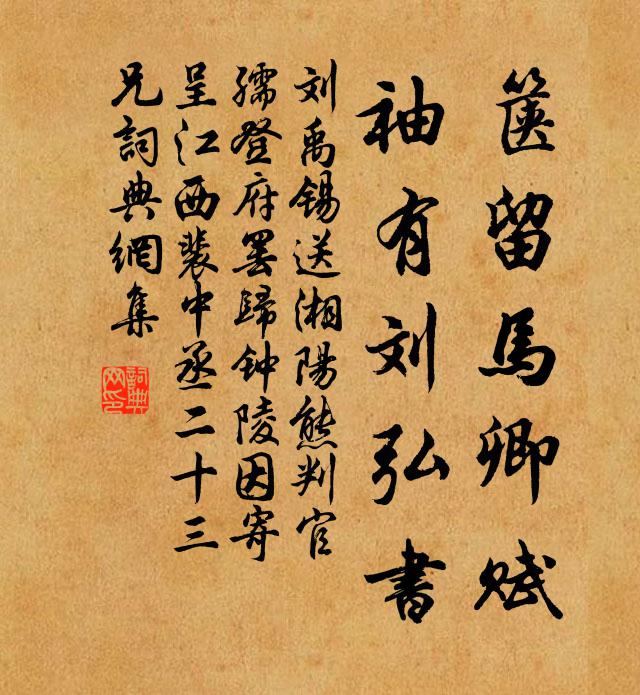 箧留馬卿赋
袖有刘弘書
刘禹锡送湘陽熊判官
孺登府罢歸钟陵因寄
呈江西裴中丞二十三
兄詞典網集
詞典网印